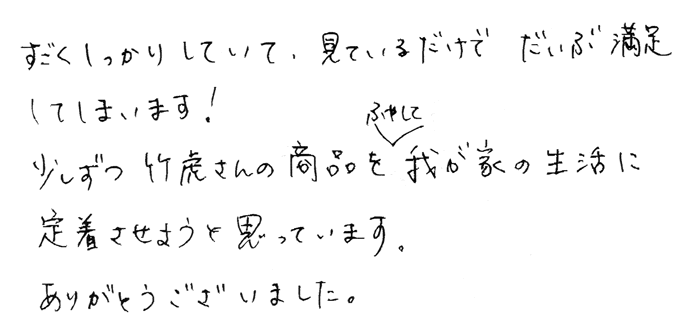 すごくしっかりしていて、見ているだけで だいぶ満足
してしまいます！
ふやして
少しずつ 竹虎さんの商品を 我が家の生活に
定着させようと思っています。
ありがとうございました。